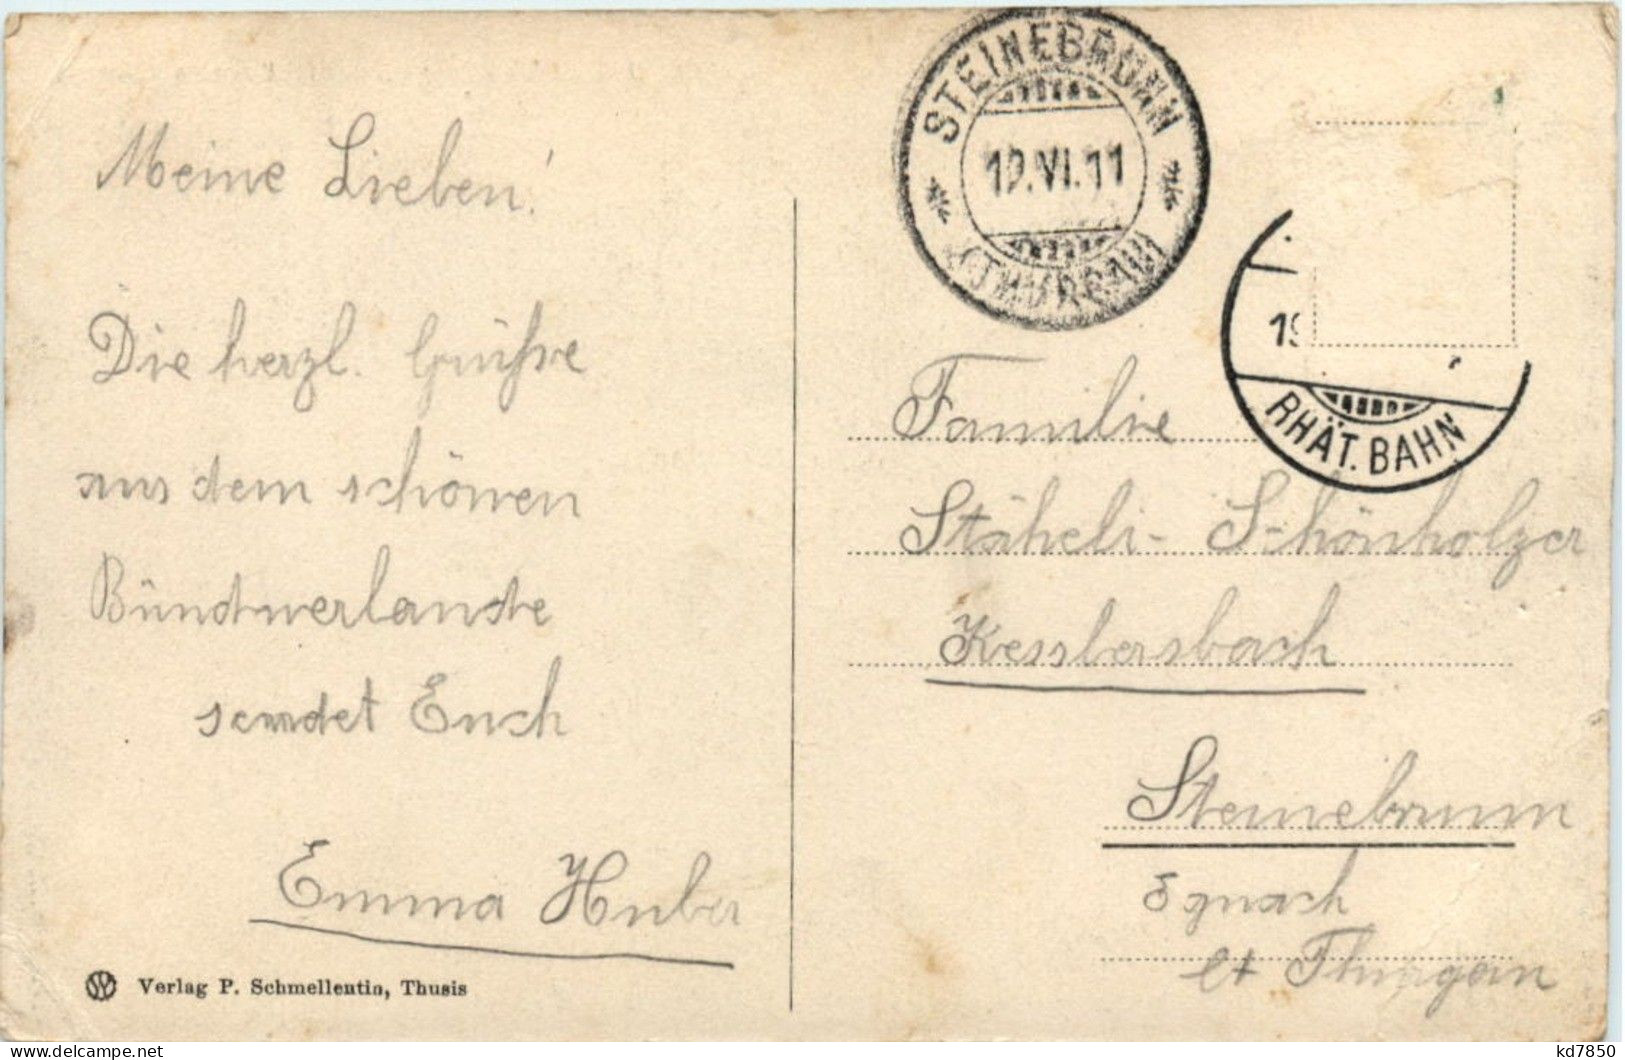 Meine Lieben!
Die herzl. Grüsse
aus dem schönen
Bündnerlande
sendet Euch
Emma Huber
Verlag P. Schmellentin, Thusis
STEINEBRUNN
12.VI.11
(THURGAU)
19
RHÄT. BAHN
Familie
Stäheli - Schönholzer
Kesslersbach
Steinebrunn
Egnach
ct Thurgau
kd7850